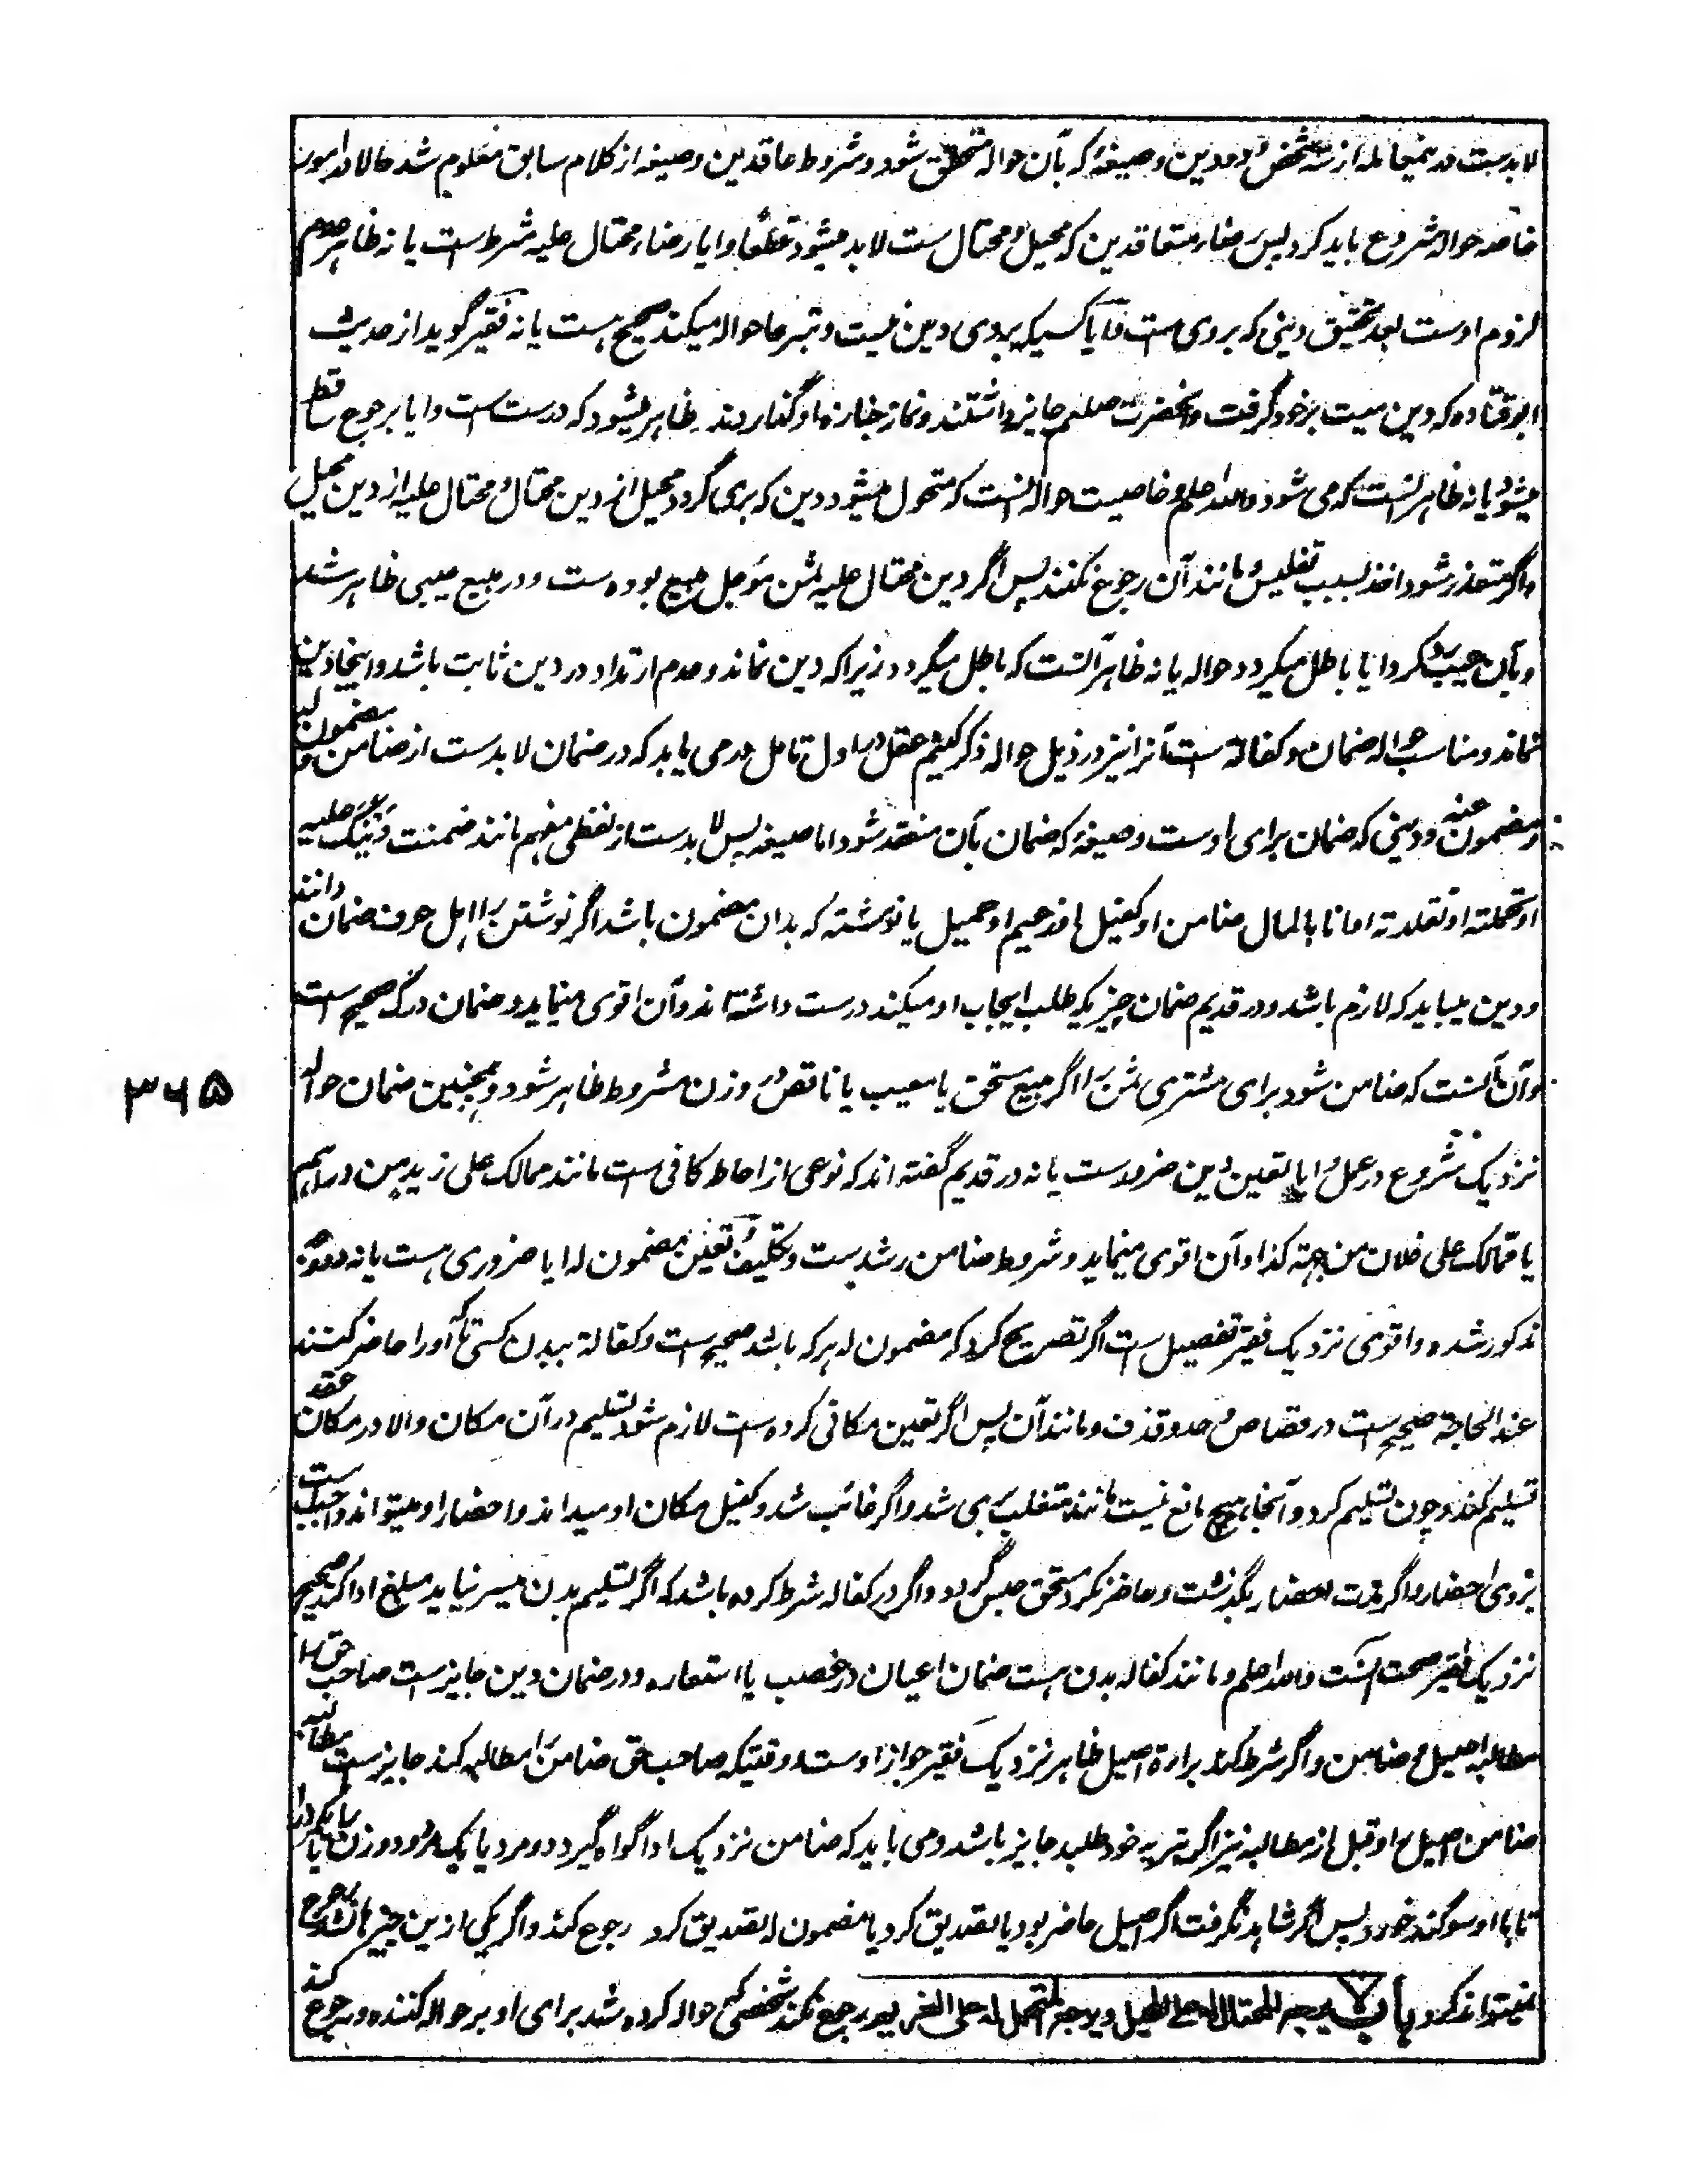 لابدست در ینمعامله از سه شخص و دو دین و صیغهٔ که بآن حواله متحقق شود و شروط عاقدین و صیغه از کلام سابق معلوم شد حالا در امور
خاصه حواله شروع باید کرد پس رضاء متعاقدین که محیل و محتال ست لابد میشود قطعًا و ایا رضاء محتال علیه شرط ست یا نه ظاهر عدم
لزوم اوست بعد تحقیق دینی که بروی ست و آیا کسیکه بروی دین نیست و تبرعا حواله میکند صحیح ست یا نه فقیر گوید از حدیث
ابو قتاده که دین میت بر خود گرفت و آنحضرت صلعم جایز داشتند و نماز جنازه او گذاردند ظاهر میشود که درست ست و ایا برجوع ساقط
میشود یا نه ظاهر آنست که می شود والله اعلم و خاصیت حواله آنست که متحول میشود دین که بری گردد محیل از دین محتال و محتال علیه از دین محیل
و اگر متعذر شود اخذ بسبب تفلیس و مانند آن رجوع نکنند پس اگر دین محتال علیه ثمن مؤجل مبیع بوده ست و در مبیع عیبی ظاهر شد
و بآن عیب رد کرد ایا باطل میگردد حواله یا نه ظاهر آنست که باطل میگردد زیرا که دین نماند و عدم ارتداد در دین ثابت باشد و اینجا دین
نماند و مناسب حواله ضمان و کفالة ست آنرا نیز در ذیل حواله ذکر کنیم عقل در اول تامل درمی یابد که در ضمان لابدست از ضامن و مضمون له
و مضمون عنه و دینی که ضمان برای اوست و صیغهٔ که ضمان بآن منعقد شود اما صیغه پس لابدست از لفظی مفهم مانند ضمنت دینک علیه
او تحملته او تقلدته او انا بالمال ضامن او کفیل او زعیم او حمیل یا نوشته که بدان مضمون باشد اگر نوشتن را اهل عرف ضمان دانند
و دین میباید که لازم باشد و در قدیم ضمان چیزیکه طلب ایجاب او میکند درست داشته اند و آن اقوی مینماید و ضمان درک صحیح ست
و آن آنست که ضامن شود برای مشتری ثمن را اگر مبیع مستحق یا معیب یا ناقص در وزن مشروط ظاهر شود و همچنین ضمان حواله
نزدیک شروع در عمل و ایا تعین دین ضرورست یا نه در قدیم گفته اند که نوعی از احاطه کافی ست مانند ممالک علی زید من دراهم
یا ممالک علی فلان من جهة کذا و آن اقوی مینماید و شروط ضامن رشدست و تکلیف و تعین مضمون له ایا ضروری ست یا نه دو وجه
مذکور شده و اقوی نزدیک فقیر تفصیل ست اگر تصریح کرد که مضمون له هر که باشد صحیح ست و کفالة ببدن کسی تا آورا حاضر کنند
عند الحاجة صحیح ست در قصاص و حد و قذف و مانند آن پس اگر تعین مکانی کرده ست لازم شود تسلیم در آن مکان والا در مکان عقد
تسلیم کند و چون تسلیم کرد و آنجا هیچ مانع نیست مانند متغلب بری شد و اگر غائب شد و کفیل مکان او میداند و احضار او میتواند واجب ست
بروی احضار و اگر مدت احضار بگذشت و حاضر نکرد مستحق حبس گردد و اگر در کفاله شرط کرده باشد که اگر تسلیم بدن میسر نیاید مبلغ ادا کند صحیح
نزدیک فقیر صحت آنست والله اعلم و مانند کفاله بدن ست ضمان اعیان در غصب یا استعاره و در ضمان دین جایزست صاحب حق را
مطالبه اصیل و ضامن و اگر شرط کند براءة اصیل ظاهر نزدیک فقیر جواز اوست و وقتیکه صاحب حق ضامن را مطالبه کند جایزست مطالبه
ضامن اصیل را و قبل از مطالبه نیز اگر تبریه خود طلبد جایز باشد و می باید که ضامن نزدیک ادا گواه گیرد دو مرد یا یک مرد و دو زن یا یکمرد را
تا با او سوگند خورد پس اگر شاهد نگرفت اگر اصیل حاضر بود یا تصدیق کرد یا مضمون له تصدیق کرد رجوع کند و اگر یکی ازین چیزها نشد رجوع
نمیتواند کرد باب لا یرجع المحتال له علی المحیل و یرجع المتحمل له علی الغریم رجوع نکند شخصی که حواله کرده شد برای او بر حواله کننده و رجوع کند
۳۶۵